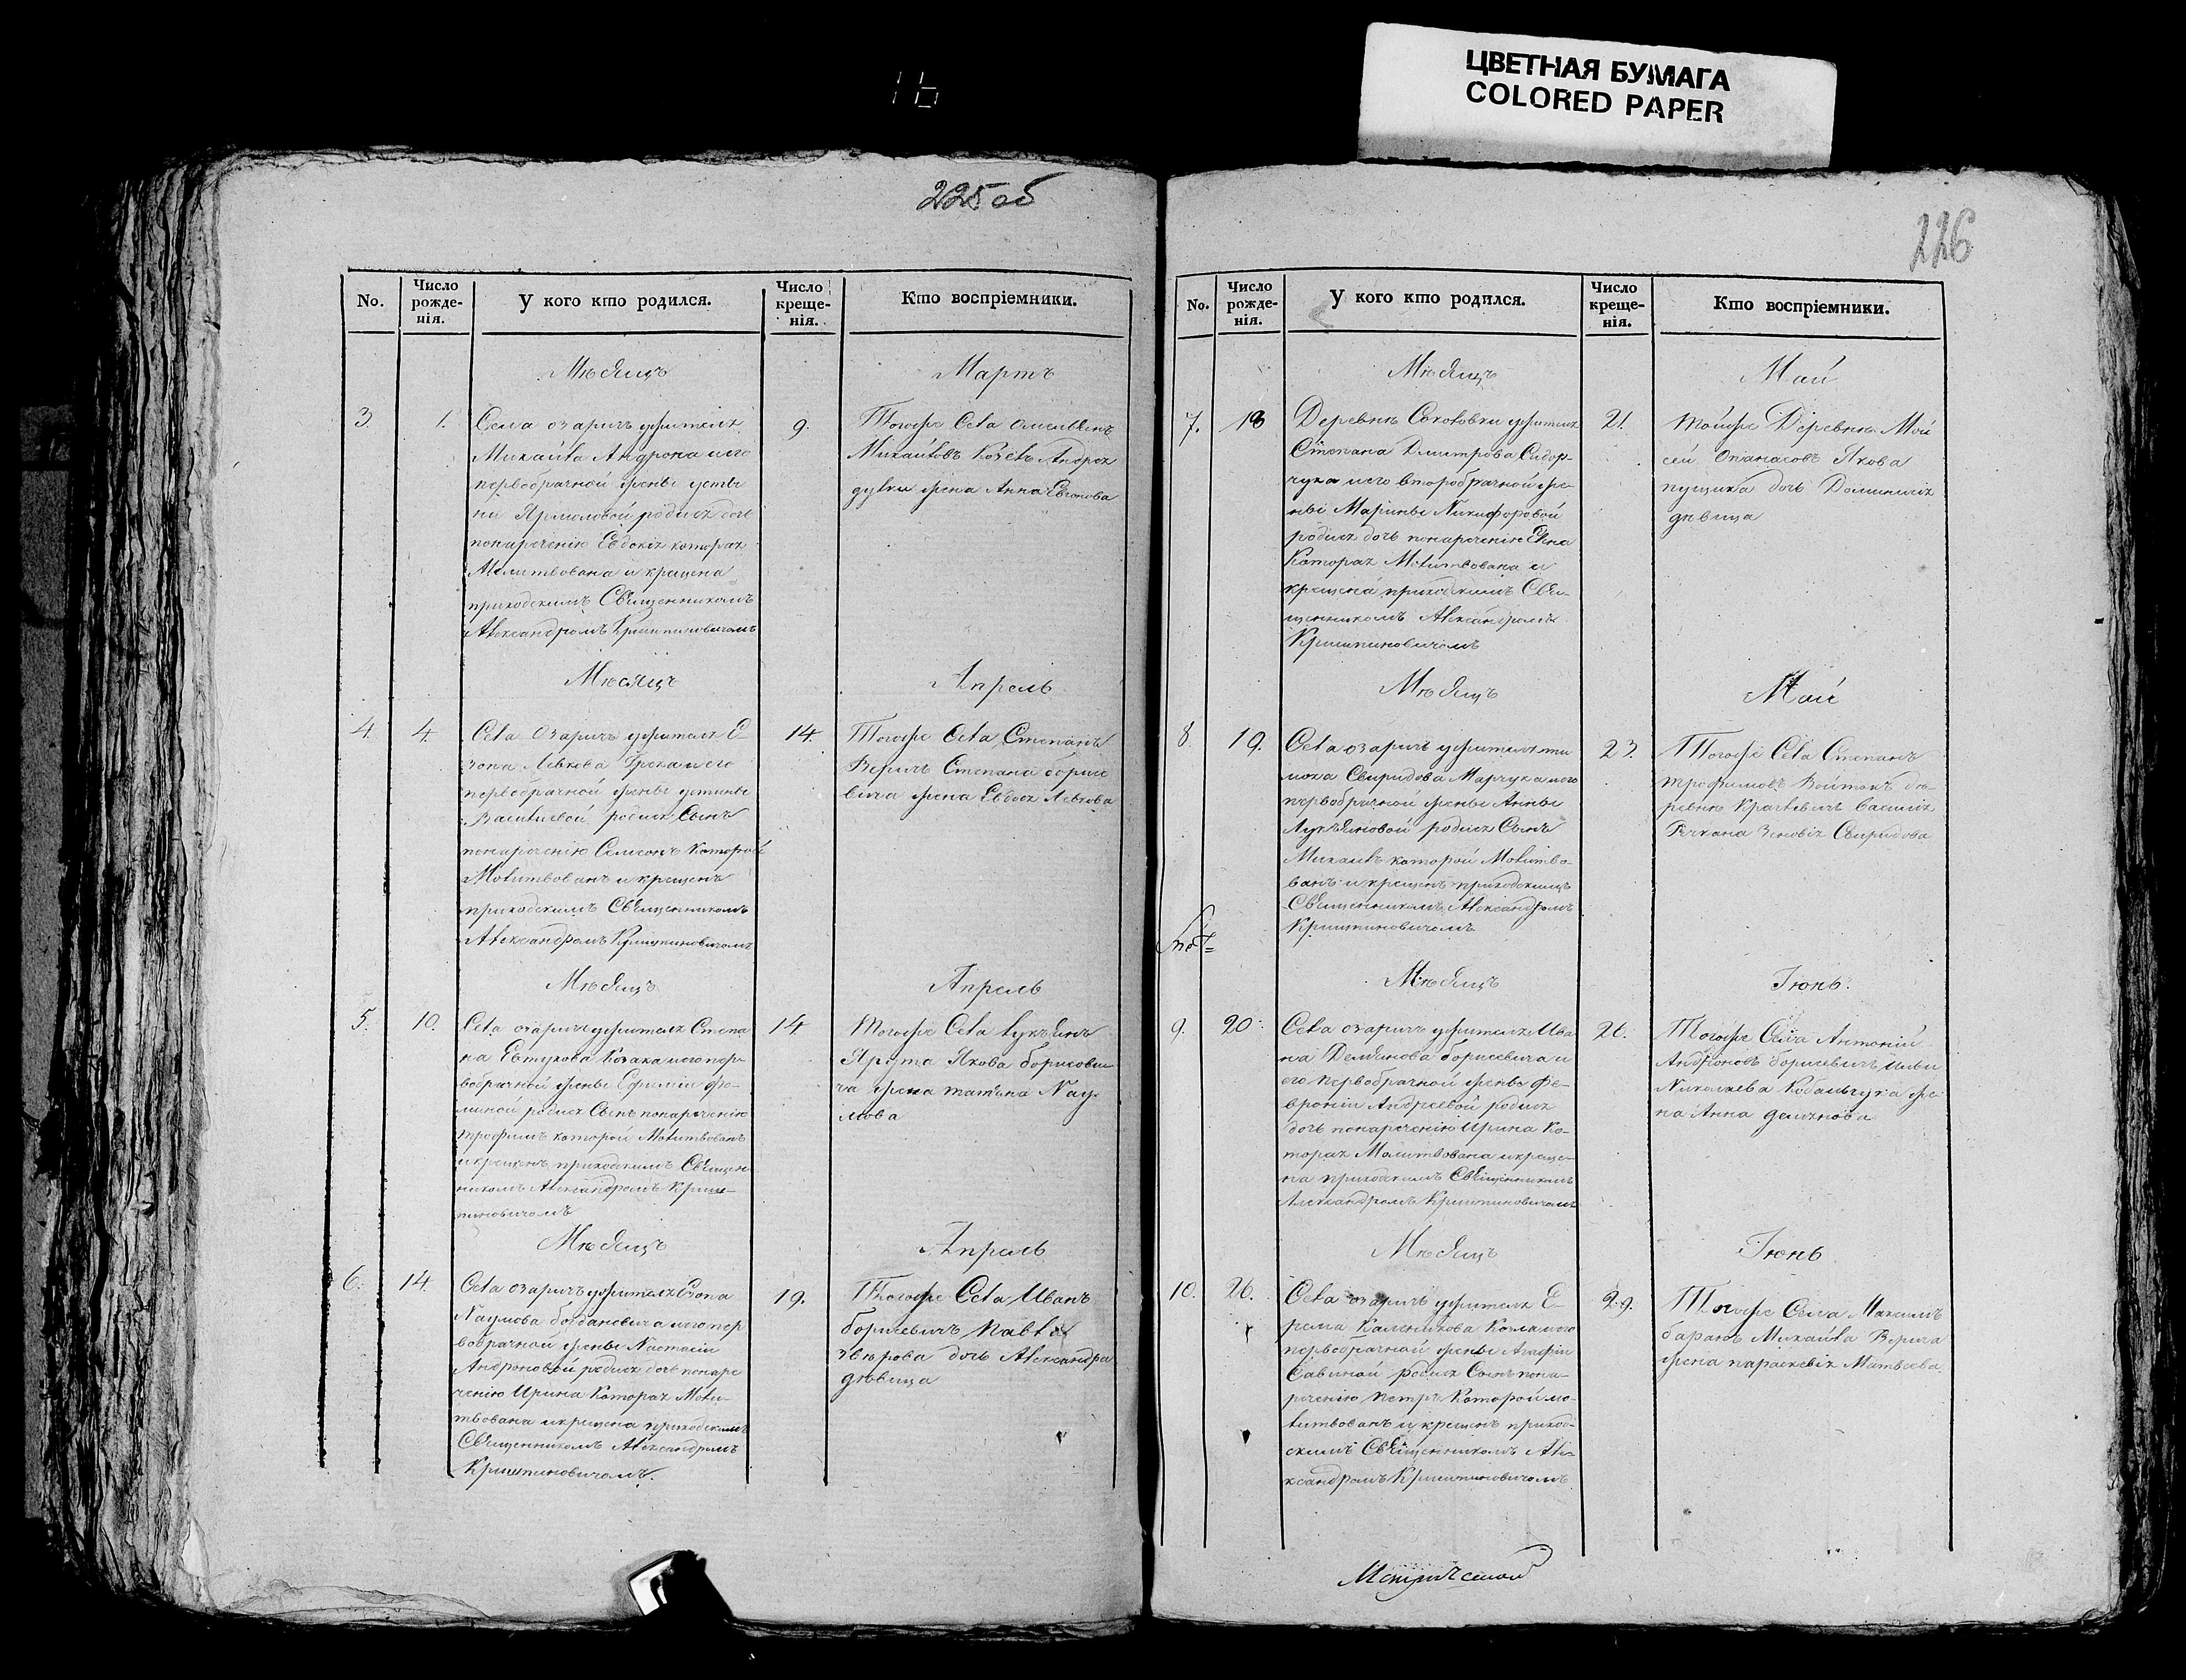 ЦВЕТНАЯ БУМАГА
COLORED PAPER
16
225 об
No.
Число рожде-нія.
У кого кто родился.
Число креще-нія.
Кто воспріемники.
Мѣсяцъ
Мартъ
3
1.
Села озаричъ жителя
Михайла Андрона и его
первобрачной жены усти
ни Ярмоловой родися дочь
понареченію Евдокія которая
Молитвована и крещена
приходскимъ Священникомъ
Александромъ Криштиновичомъ
9.
Тогоже Села
Михайловъ Андрея
жена Анна
Мѣсяцъ
Апрель
4.
4.
Села Озаричъ жителя Е
зопа Левкова Грека и его
первобрачной жены устины
Васильевой родися Сынъ
понареченію Самсонъ Которой
Молитвованъ и крещенъ
приходскимъ Священникомъ
Александромъ Криштиновичомъ
14.
Тогоже Села Степанъ
Веричъ Степана борисе
вича жена Евдося Левкова
Мѣсяцъ
Апрель
5.
10.
Села озаричъ жителя Степа
на Евтухова Козака и его пер-
вобрачной жены Ефиміи Фо-
миной родися Сынъ понареченію
трофимъ которой Молитвованъ
и крещенъ приходскимъ Священ-
никомъ Александромъ Кришт-
иновичомъ
14
Тогоже Села лукъянъ
Ярута Якова борисови-
ча жена татьяна Нау-
мова
Мѣсяцъ
Апрель
6.
14.
Села озаричъ жителя Езопа
Наумова богдановича и его пер
вобрачной жены Настасіи
Андроновой родися дочь понаре
ченію Ирина Которая Моли-
твована и крещена приходскимъ
Священникомъ Александромъ
Криштиновичомъ.
19.
Тогоже Села Иванъ
борисевичъ Павла
звѣрова дочь Александра
дѣвица
226
No.
Число рожде-нія.
У кого кто родился.
Число креще-нія.
Кто воспріемники.
Мѣсяцъ
Май
7.
18
Деревнѣ Соколовки жителя
Степана Дмитрова Сидор-
чука и его второбрачной же-
ны Марины Никифоровой
родися дочь понареченію Елена
Которая Молитвована и
крещена приходскимъ Свя-
щенникомъ Александромъ
Криштиновичомъ
21.
тойже Деревнѣ Мои
сей Опанасовъ Якова
пущика дочь Доминикія
дѣвица
Мѣсяцъ
Май
8.
19.
Села озаричъ жителя ти
моха Свиридова Марчука и его
первобрачной жены Анны
Лукъяновой родися Сынъ
Михаилъ которой Молитво-
ванъ и крещенъ приходскимъ
Священникомъ Александромъ
Криштиновичомъ
23.
Тогоже Села Степанъ
трофимовъ Войтокъ де-
ревнѣ Василія
Зеновія Свиридова
Мѣсяцъ
Іюнь.
9.
20.
Села озаричъ жителя Ива
на Демьянова борисевича и
его первобрачной жены Фе-
вроніи Андреевой родися
дочь понареченію Ирина Ко-
торая Молитвована и креще-
на приходскимъ Священникомъ
Александромъ Криштиновичомъ
26.
Тогоже Села Антоній
Андроновъ борисевичъ
Николаева Ковальчука же-
на Анна демянова
Мѣсяцъ
Іюнь
10.
26.
Села озаричъ жителя Е-
рема Каленикова Козла и его
первобрачной жены Агафіи
Савиной родися Сынъ пона-
реченію Петръ Которой мо-
литвованъ и крещенъ приход-
скимъ Священникомъ Але-
ксандромъ Криштиновичомъ
29.
Тогоже Села Максимъ
баранъ Михайла Верича
жена параскевія Матвеева